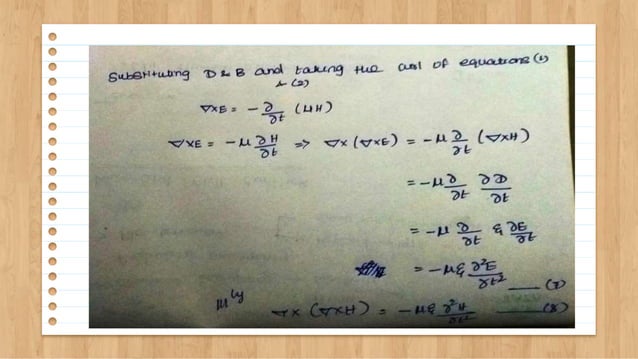 Substituting D & B and taking the curl of equations (1)
& (2)
∇×E = -∂/∂t (μH)
∇×E = -μ ∂H/∂t => ∇×(∇×E) = -μ ∂/∂t (∇×H)
= -μ ∂/∂t ∂D/∂t
= -μ ∂/∂t ξ ∂E/∂t
= -μξ ∂²E/∂t² —— (7)
|||ly ∇×(∇×H) = -μξ ∂²H/∂t² —— (8)